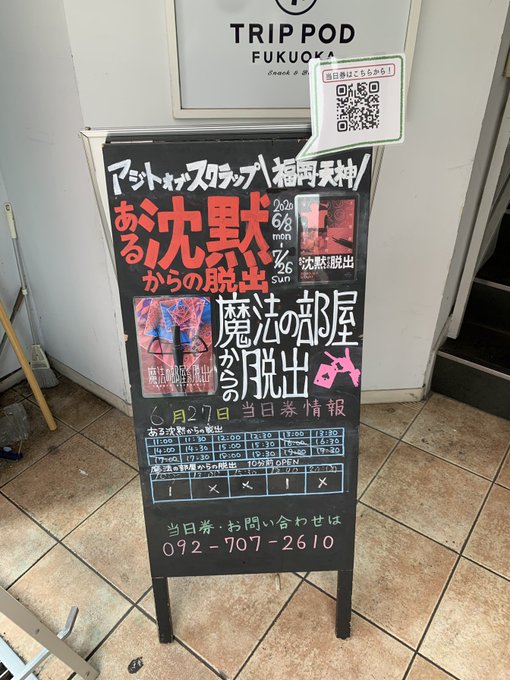 TRIP POD
FUKUOKA
Snack &
当日券はこちらから!
アジトオブスクラップ\福岡・天神/
ある沈黙からの脱出
2020
6/8
mon
7/26
sun
沈黙脱出
魔法の部屋からの脱出
魔法の部屋脱出
6月27日 当日券情報
ある沈黙からの脱出
11:00 11:30 12:00 12:30 13:00 13:30
14:00 14:30 15:00 15:30 16:00 16:30
17:00 17:30 18:00 18:30 19:00
魔法の部屋からの脱出 10分前OPEN
当日券・お問い合わせは
092-707-2610